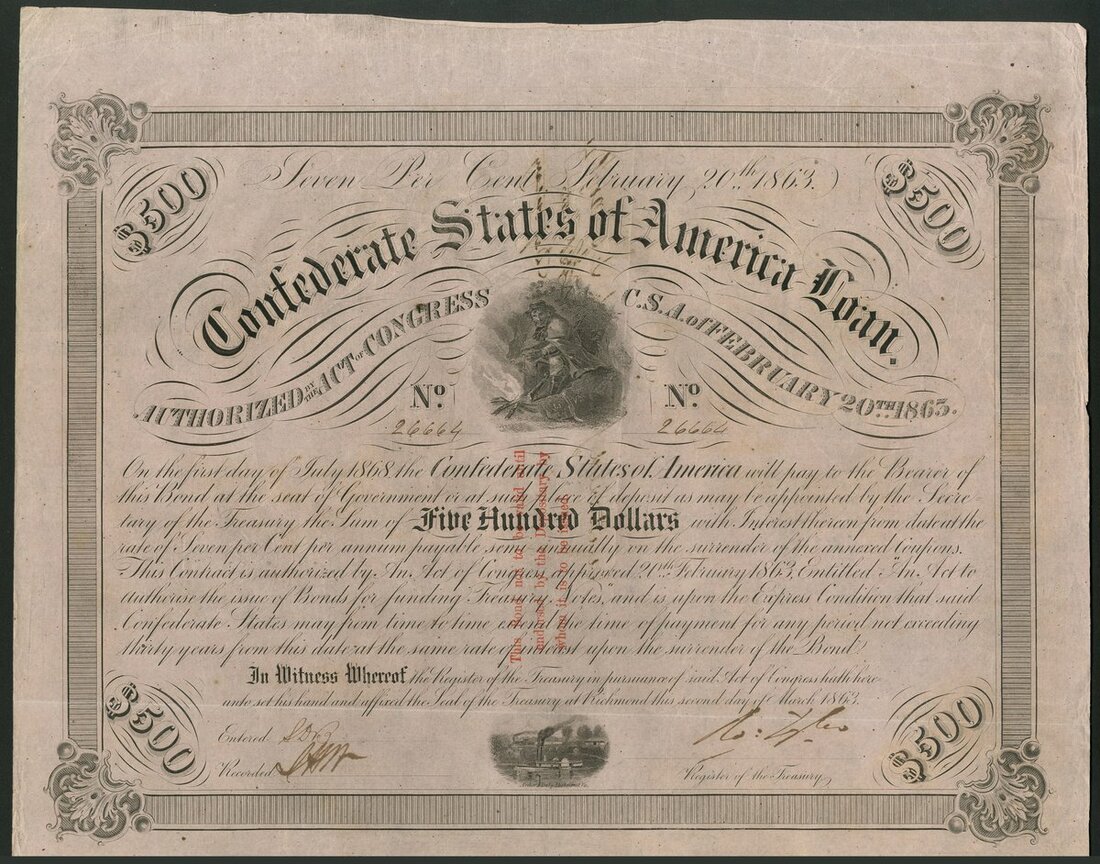 $500
Seven Per Cent February 20th 1863.
$500
Confederate States of America Loan.
AUTHORIZED BY THE ACT of CONGRESS C.S.A. of FEBRUARY 20TH 1863.
No. No.
26664 26664
On the first day of July 1868 the Confederate States of America will pay to the Bearer of
this Bond at the seat of Government or at such place of deposit as may be appointed by the Secre
tary of the Treasury the Sum of Five Hundred Dollars with Interest thereon from date at the
rate of Seven per Cent per annum payable semi annually on the surrender of the annexed Coupons.
This Contract is authorized by An Act of Congress, approved 20th February 1863, Entitled An Act to
authorise the issue of Bonds for funding Treasury Notes, and is upon the Express Condition that said
Confederate States may from time to time extend the time of payment for any period not exceeding
thirty years from this date at the same rate of interest upon the surrender of the Bond.
This Bond not to be valid until
endorsed by the Depositary by
whom it is to be issued
In Witness Whereof, the Register of the Treasury in pursuance of said Act of Congress hath here-
unto set his hand and affixed the Seal of the Treasury at Richmond this second day of March 1863.
$500
Entered
Recorded
Register of the Treasury
$500